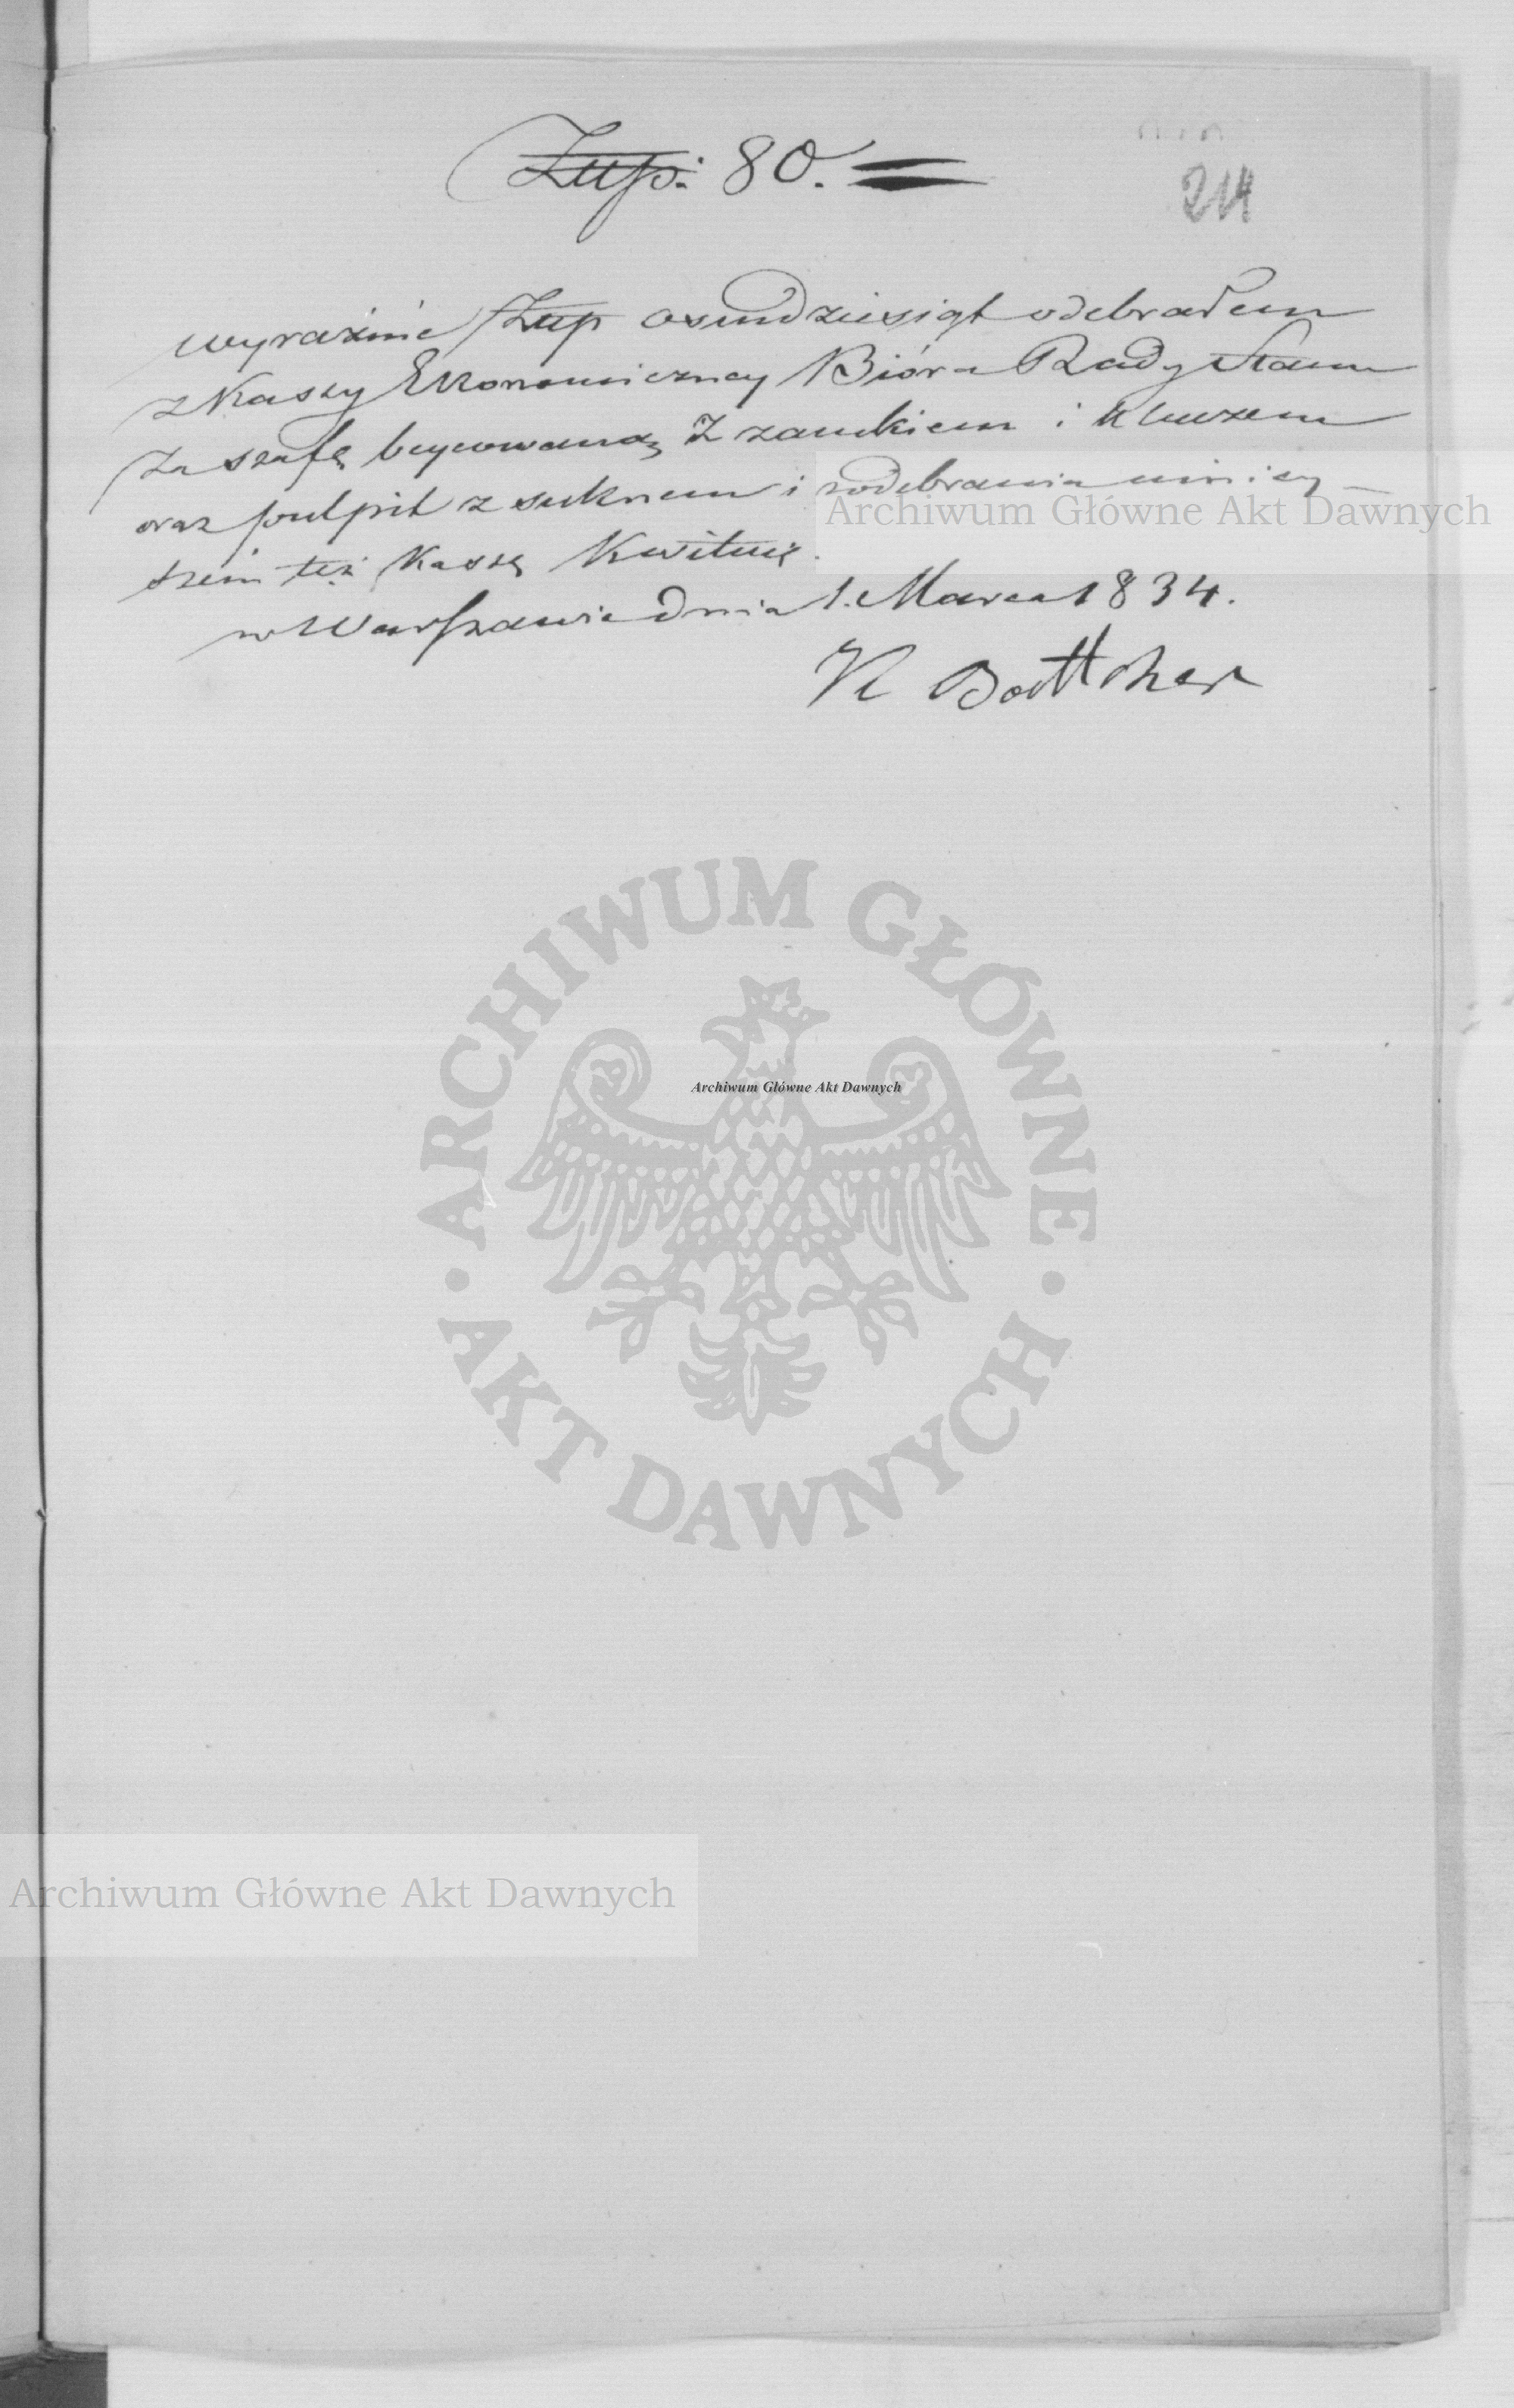 Złłp: 80.
214
wyraźnie Złłp osmdziesiąt odebrałem
z Kassy Ekonomiczney Bióra Rady Stanu
za szafę beycowaną z zamkiem i kluczem
oraz pulpit z suknem i z odebrania niniey-
szem też Kassę Kwituię.
w Warszawie dnia 1. Marca 1834.
Archiwum Główne Akt Dawnych
ARCHIWUM GŁÓWNE
Archiwum Główne Akt Dawnych
AKT DAWNYCH
Archiwum Główne Akt Dawnych